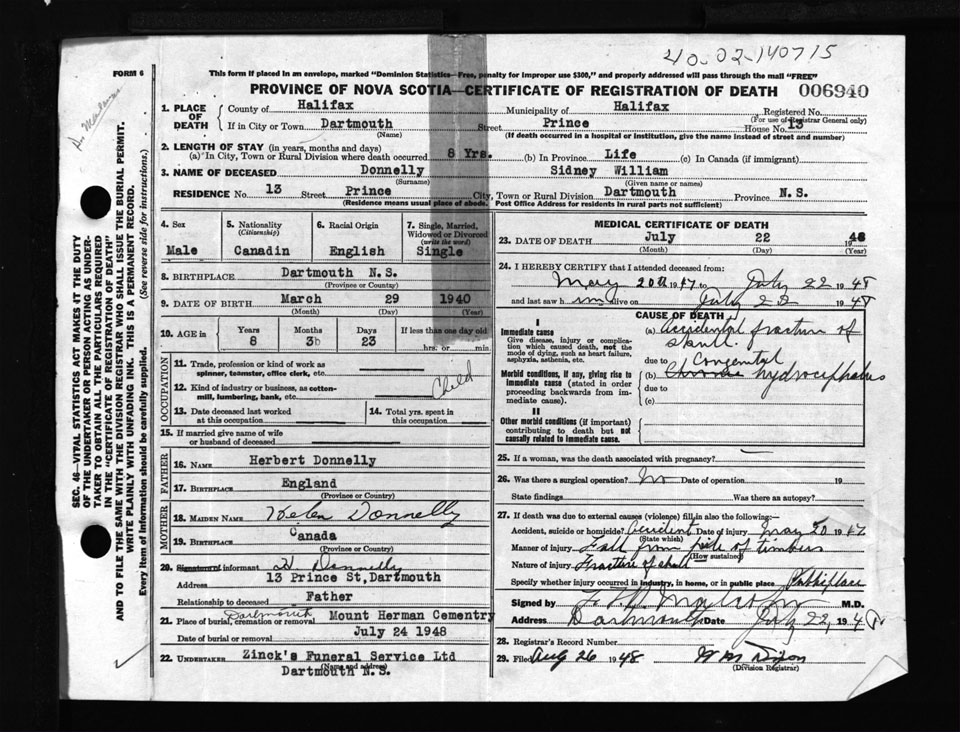 40-02-140715
FORM 6
This form if placed in an envelope, marked "Dominion Statistics—Free, penalty for improper use $300," and properly addressed will pass through the mail "FREE"
PROVINCE OF NOVA SCOTIA—CERTIFICATE OF REGISTRATION OF DEATH 006940
SEC. 46—VITAL STATISTICS ACT MAKES IT THE DUTY
OF THE UNDERTAKER OR PERSON ACTING AS UNDER-
TAKER TO OBTAIN ALL THE PARTICULARS REQUIRED
IN THE "CERTIFICATE OF REGISTRATION OF DEATH"
AND TO FILE THE SAME WITH THE DIVISION REGISTRAR WHO SHALL ISSUE THE BURIAL PERMIT.
WRITE PLAINLY WITH UNFADING INK. THIS IS A PERMANENT RECORD.
Every item of Information should be carefully supplied. (See reverse side for Instructions.)
1. PLACE OF DEATH
County of Halifax Municipality of Halifax Registered No.
(For use of Registrar General only)
If in City or Town Dartmouth Street Prince House No. 13
(Name) (If death occurred in a hospital or institution, give the name instead of street and number)
2. LENGTH OF STAY (in years, months and days)
(a) In City, Town or Rural Division where death occurred 8 Yrs. (b) In Province Life (c) In Canada (if immigrant)
3. NAME OF DECEASED Donnelly Sidney William
(Surname) (Given name or names)
RESIDENCE No. 13 Street Prince City, Town or Rural Division Dartmouth Province N.S.
(Residence means usual place of abode. Post Office Address for residents in rural parts not sufficient)
4. Sex
Male
5. Nationality
(Citizenship)
Canadin
6. Racial Origin
English
7. Single, Married,
Widowed or Divorced
(write the word)
Single
8. BIRTHPLACE Dartmouth N.S.
(Province or Country)
9. DATE OF BIRTH March 29 1940
(Month) (Day) (Year)
10. AGE in Years Months Days If less than one day old
8 3b 23 hrs. or min.
OCCUPATION
11. Trade, profession or kind of work as
spinner, teamster, office clerk, etc.
12. Kind of industry or business, as cotton-
mill, lumbering, bank, etc. Child
13. Date deceased last worked
at this occupation
14. Total yrs. spent in
this occupation
15. If married give name of wife
or husband of deceased
FATHER
16. NAME Herbert Donnelly
17. BIRTHPLACE England
(Province or Country)
MOTHER
18. MAIDEN NAME Helen Donnelly
19. BIRTHPLACE Canada
(Province or Country)
20. Signature of informant H. Donnelly
Address 13 Prince St, Dartmouth
Relationship to deceased Father
21. Place of burial, cremation or removal Dartmouth Mount Herman Cementry
Date of burial or removal July 24 1948
22. UNDERTAKER Zinck's Funeral Service Ltd
(Name and address)
Dartmouth N.S.
MEDICAL CERTIFICATE OF DEATH
23. DATE OF DEATH July 22 1948
(Month) (Day) (Year)
24. I HEREBY CERTIFY that I attended deceased from:
May 20th 1947 to July 22 1948
and last saw him alive on July 22 1948
CAUSE OF DEATH
I
Immediate cause
Give disease, injury or complica-
tion which caused death, not the
mode of dying, such as heart failure,
asphyxia, asthenia, etc.
(a) accidental fracture of
skull.
due to Congenital
Morbid conditions, if any, giving rise to
immediate cause (stated in order
proceeding backwards from im-
mediate cause).
(b) Chronic hydrocephalus
due to
(c)
II
Other morbid conditions (if important)
contributing to death but not
causally related to immediate cause.
25. If a woman, was the death associated with pregnancy?
26. Was there a surgical operation? No Date of operation 19
State findings Was there an autopsy?
27. If death was due to external causes (violence) fill in also the following:
Accident, suicide or homicide? Accident Date of injury May 20 1947
(State which)
Manner of injury Fall from pile of timber
(How sustained)
Nature of injury Fracture of skull
Specify whether injury occurred in industry, in home, or in public place Public place
Signed by Malcolm M.D.
Address Dartmouth Date July 22, 1948
28. Registrar's Record Number
29. Filed Aug 26 1948 Dixon
(Division Registrar)